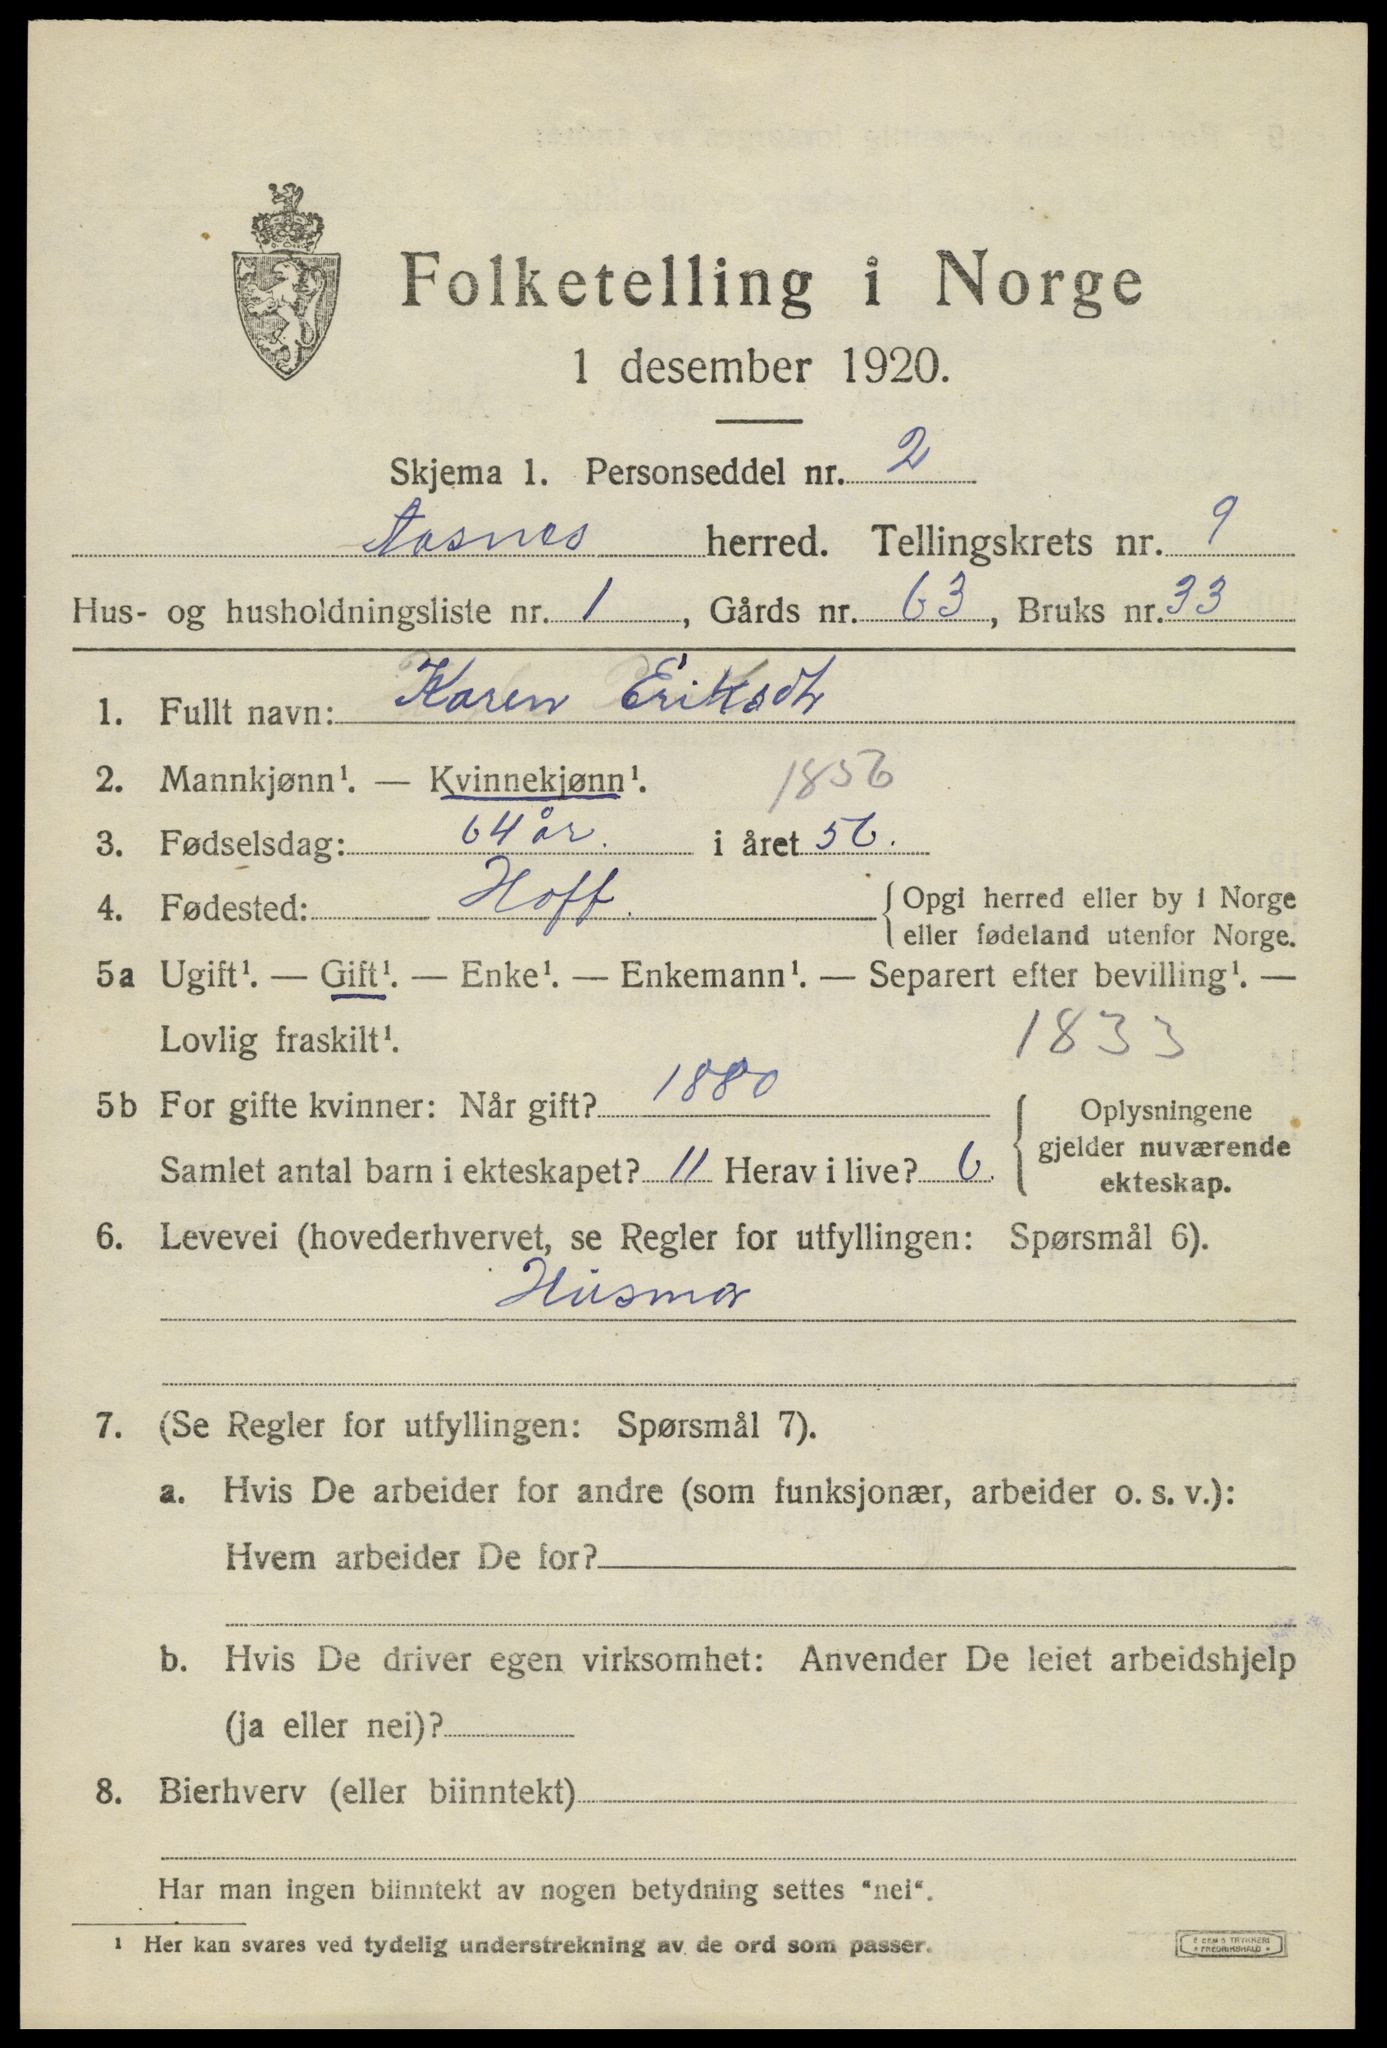 Folketelling i Norge
1 desember 1920.
Skjema 1. Personseddel nr. 2
Aasnes herred. Tellingskrets nr. 9
Hus- og husholdningsliste nr. 1, Gårds nr. 63, Bruks nr. 33
1. Fullt navn: Karen Eriksdtr
2. Mannkjønn¹. — Kvinnekjønn¹. 1856
3. Fødselsdag: 64 år. i året 56.
4. Fødested: Hoff. {Opgi herred eller by i Norge
eller fødeland utenfor Norge.
5a Ugift¹. — Gift¹. — Enke¹. — Enkemann¹. — Separert efter bevilling¹. —
Lovlig fraskilt¹. 1833
5b For gifte kvinner: Når gift? 1880
Samlet antal barn i ekteskapet? 11 Herav i live? 6.
{Oplysningene
gjelder nuværende
ekteskap.
6. Levevei (hovederhvervet, se Regler for utfyllingen: Spørsmål 6).
Husmor
7. (Se Regler for utfyllingen: Spørsmål 7).
a. Hvis De arbeider for andre (som funksjonær, arbeider o. s. v.):
Hvem arbeider De for?
b. Hvis De driver egen virksomhet: Anvender De leiet arbeidshjelp
(ja eller nei)?
8. Bierhverv (eller biinntekt)
Har man ingen biinntekt av nogen betydning settes "nei".
¹ Her kan svares ved tydelig understrekning av de ord som passer.
TRYKKERI
FREDRIKSHALD